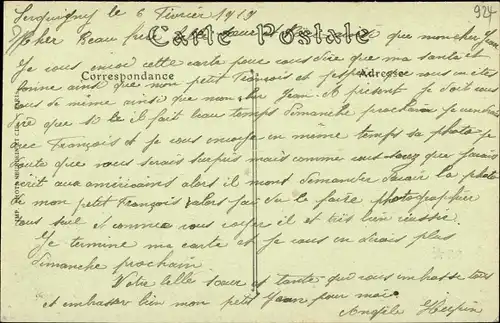 Serquigny le 6 Février 1919
924
Cher Beau frère que mon cher Jean
Carte Postale
Je vous envoi cette carte pour vous dire que ma santé est
Correspondance
Adresse
bonne ainsi que mon petit François et j'espère que vous en êtes
tous de même ainsi que mon cher Jean. A présent je dois vous
dire que si il fait beau temps dimanche prochain je viendrais
que François et je vous envoye en même temps sa photo je
doute que vous serais surpris mais comme vous savez que j'avais
écrit aux américains alors il mont demander d'avoir la photo
de mon petit François alors j'ai du le faire photographier
tous seul et comme vous verrez il et très bien réussie.
Je termine ma carte et je vous en dirais plus
dimanche prochain
Votre belle sœur et tante qui vous embrasse tous
et embrasser bien mon petit Jean pour moi
Angèle Herpin